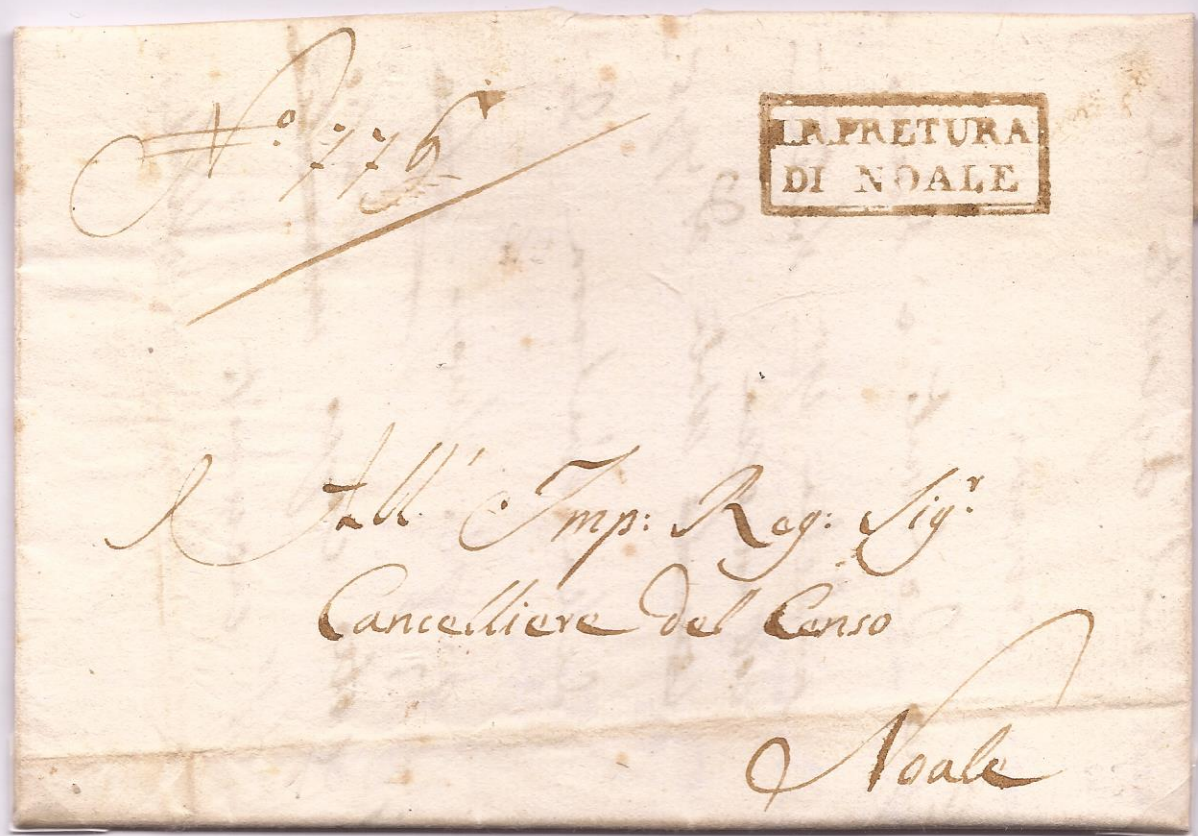 N.º 776
I.R.PRETURA
DI NOALE
All' Imp: Reg: Sig.r
Cancelliere del Censo
Noale